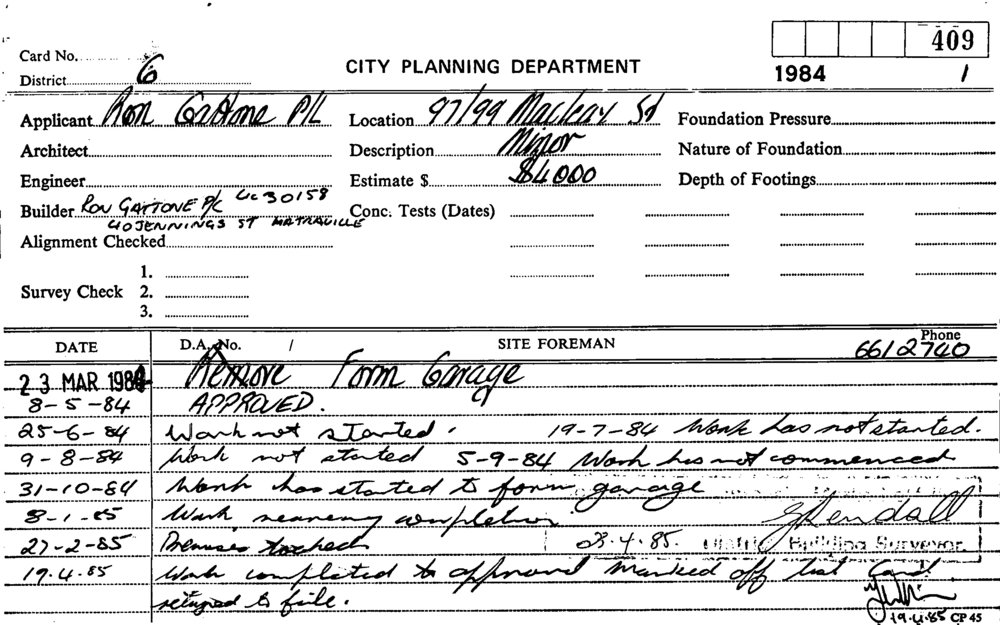 409
Card No.
District 6
CITY PLANNING DEPARTMENT
1984 1
Applicant Ron Gattone P/L
Location 97/99 Macleay St
Foundation Pressure
Architect
Description Minor
Nature of Foundation
Engineer
Estimate $ $4000
Depth of Footings
Builder Ron GATTONE P/L Lic 30158
40 JENNINGS ST MATRAVILLE
Conc. Tests (Dates)
Alignment Checked
1.
Survey Check 2.
3.
DATE D.A. No. / SITE FOREMAN Phone
6612740
23 MAR 1984 Remove Form Garage
8-5-84 APPROVED.
25-6-84 Work not started. 19-7-84 Work has not started.
9-8-84 Work not started 5-9-84 Work has not commenced
31-10-84 Work has started to form garage
8-1-85 Work nearing completion
27-2-85 Premises locked 03.4.85. District Building Surveyor
19.4.85 Work completed to approval Marked off list Card
returned to file.
19.4.85 CP 45